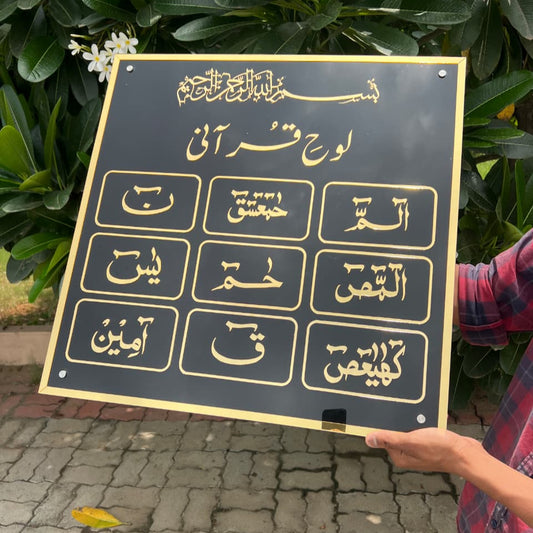 بسم الله الرحمن الرحيم
لوحِ قُرآنی
الٓمّٓ حٰمٓعٓسٓقٓ نٓ
الٓمّٓصٓ حٰمٓ يٰسٓ
كٓهٰيٰعٓصٓ قٓ آمِيْنْ